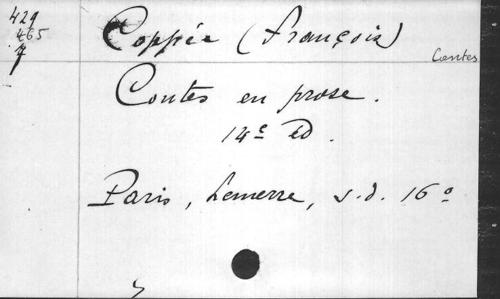 429
465
7
Coppée (François)
Contes
Contes en prose.
14e Ed.
Paris, Lemerre, s.d. 16o